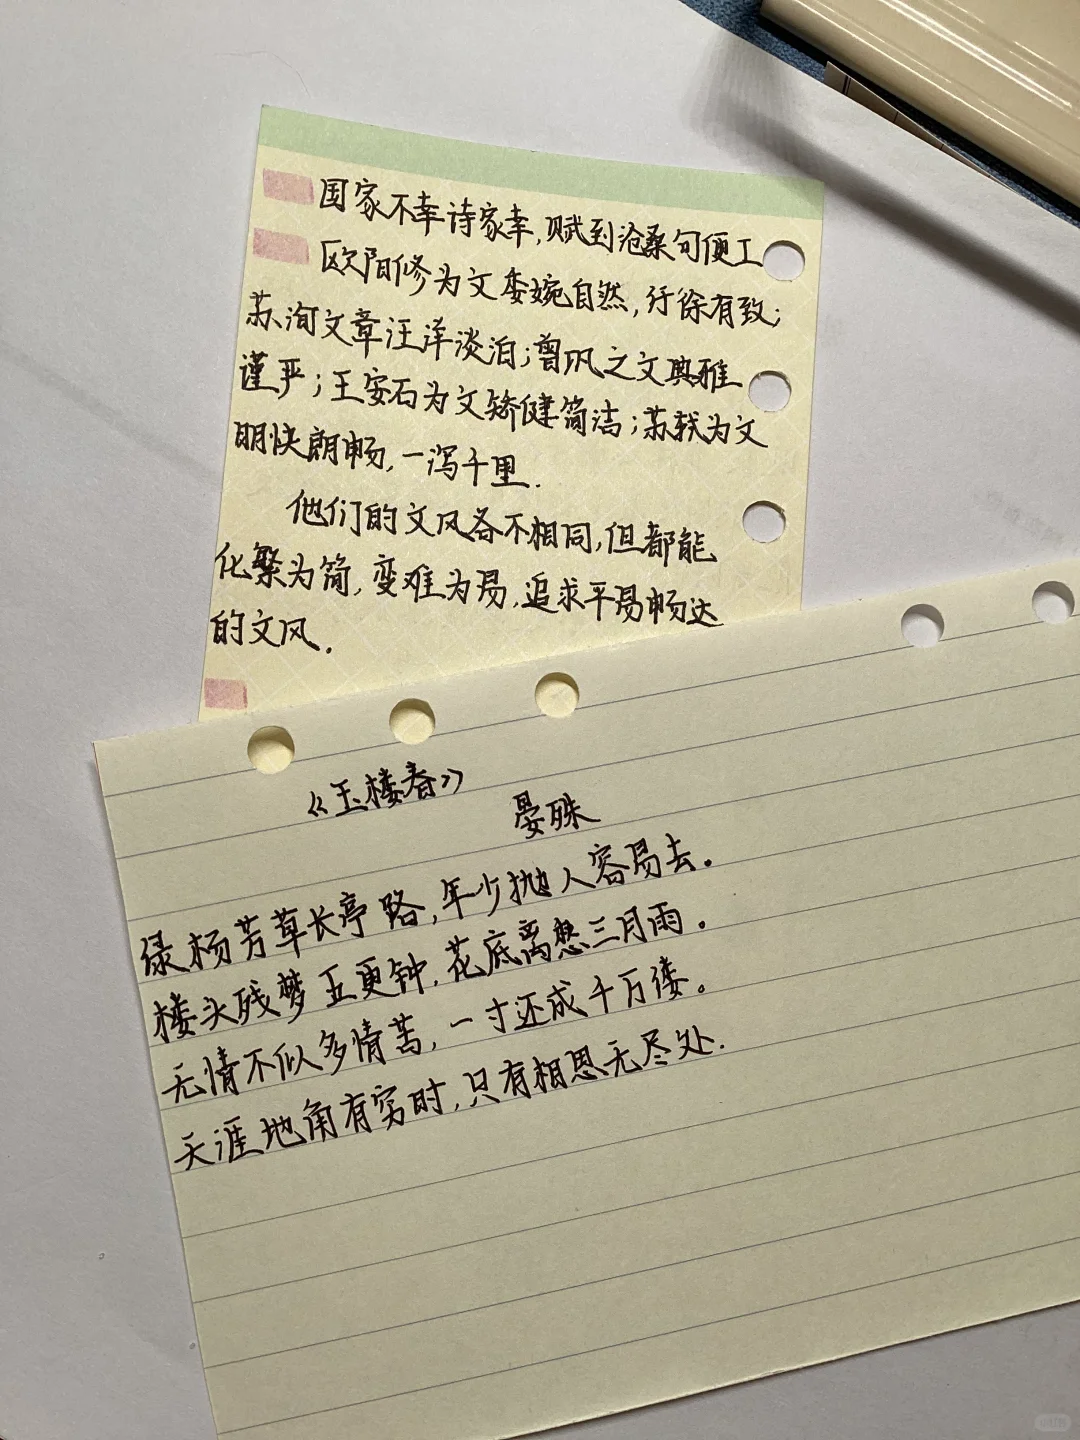 国家不幸诗家幸,赋到沧桑句便工
欧阳修为文委婉自然,纡徐有致;
苏洵文章汪洋淡泊;曾巩之文典雅
谨严;王安石为文矫健简洁;苏轼为文
明快朗畅,一泻千里.
他们的文风各不相同,但都能
化繁为简,变难为易,追求平易畅达
的文风.
《玉楼春》
晏殊
绿杨芳草长亭路,年少抛人容易去。
楼头残梦五更钟,花底离愁三月雨。
无情不似多情苦,一寸还成千万缕。
天涯地角有穷时,只有相思无尽处.